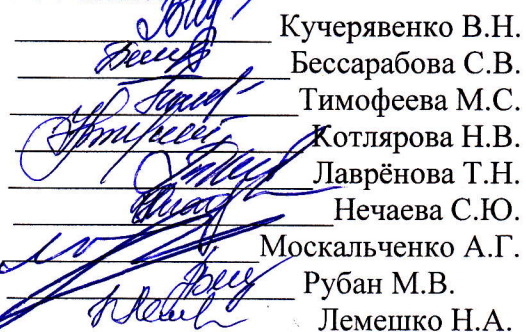 Кучерявенко В.Н.
Бессарабова С.В.
Тимофеева М.С.
Котлярова Н.В.
Лаврёнова Т.Н.
Нечаева С.Ю.
Москальченко А.Г.
Рубан М.В.
Лемешко Н.А.